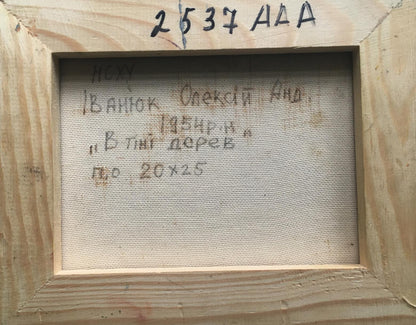 2537 АДА
НСХУ
Іванюк Олексій Анд.
1954р.н
„В тіні дерев"
п,о 20х25